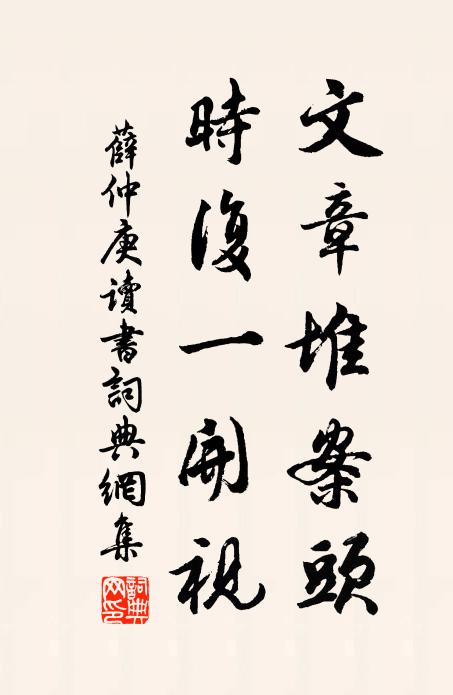 文章堆案頭
時復一開視
薛仲庚讀書詞典網集
詞典網印